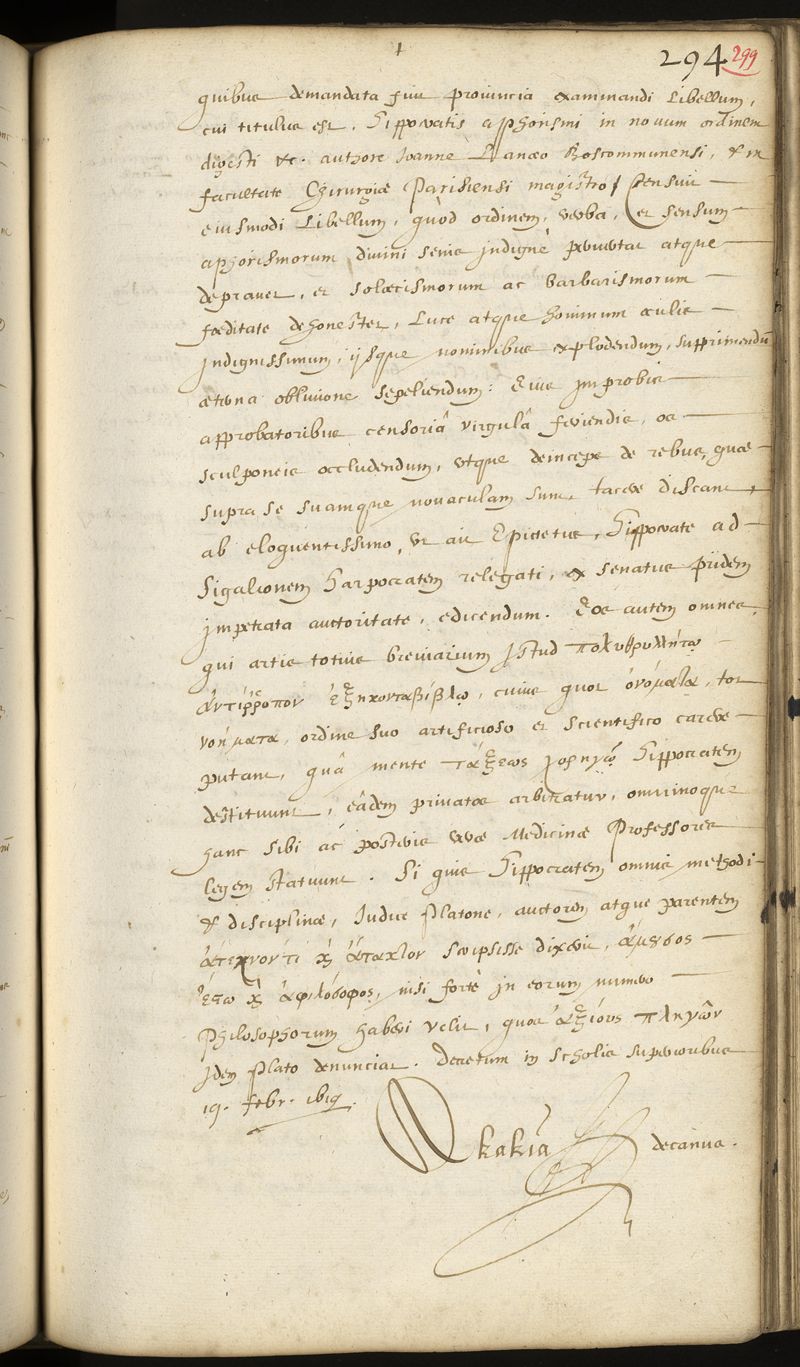 294 299
quibus demandata fuit prouincia examinandi Libellum,
cui titulus est, Hippocratis aphorismi in nouum ordinem
digesti &c. authore Ioanne Lanaeo Roscommunensi, & in
facultate Chirurgiæ Parisiensi magistro / Censuit
eiusmodi Libellum, quòd ordinem, verba, et sensum
aphorismorum diuini senis indignè peruertat atque
deprauet, et solœcismorum ac barbarismorum
fœditate dehonestet, Luce atque hominum oculis
indignissimum, ijsque nominibus explodendum, supprimendũ
æterna obliuione sepeliendum: Eius improbis
approbatoribus censoriâ virgulâ feriendis, os
sculponeis occludendum, vtque deinceps de rebus, quæ
supra se suamque nouaculam sunt, tacere discant,
ab eloquentissimo, vt ait Epictetus, Hippocrate ad
Sigalionem Harpocratem relegati, ex senatus pridem
impetrata auctoritate, edicendum. Eos autem omnes,
qui artis totius breuiarium istud πολυθρυλλήτῳ
ἀντίρροπον ἑξηκονταβίβλῳ, cuius quot ὀνόματα, tot
νοήματα, ordine suo artificioso et scientifico carere
putant, quâ mente τάξεως χορηγῷ Hippocratem
destituunt, eâdem priuatos arbitratur, omninoque
hanc sibi ac posteris veræ Medicinæ Professores
legem statuunt. Si quis Hippocratem omnis methodi
& disciplinæ, Iudice Platone, auctorem atque parentem
ἄτεχνόν τι ϗ ἄτακτον scripsisse dixerit, ἄμουσος
ἔστω ϗ ἀφιλόσοφος, nisi fortè in eorum numero
Philosophorum haberi velit, quos ἀξίους πληγῶν
idem Plato denunciat. Decretum in scholis superioribus
19. febr. 1619.
Akakia decanus.